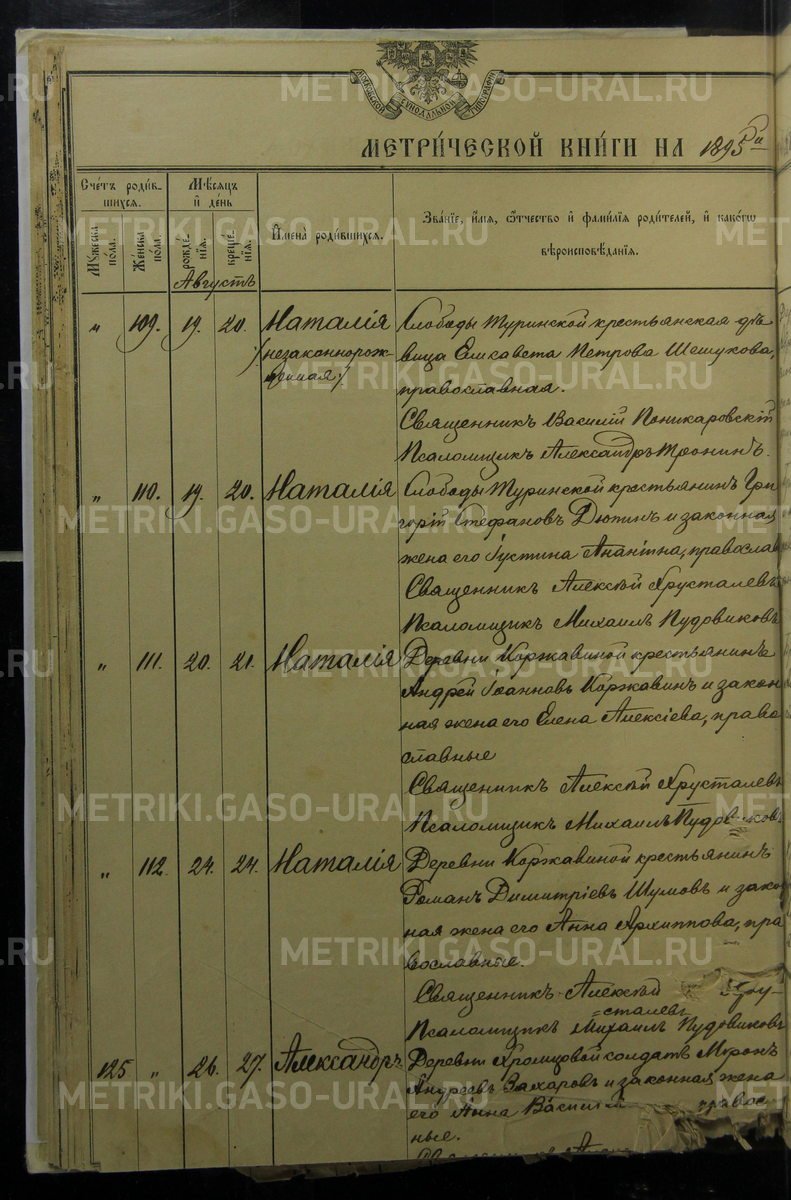 МЕТРИ́ЧЕСКОЙ КНИ́ГИ НА 1895й
Сче́тъ роди́в-
шихся.
Мѣ́сяцъ
и҆ де́нь
Мꙋ́жеска
по́ла.
Же́нска
по́ла.
рожде́-
нїѧ.
креще́-
нїѧ.
И҆мена̀ роди́вшихся.
Зва́нїе, и҆́мѧ, ѻ҆́тчество и҆ фами́лїѧ роди́телей, и҆ како́гѡ
вѣроисповѣ́данїѧ.
Августъ
" 109. 19. 20. Наталія
(незаконнорож-
денная)
Слободы Туринской крестьянская дѣ-
вица Елисавета Петрова Шешукова,
православная.
Священникъ Василій Поникаровскій
Псаломщикъ Александръ Тронинъ.
" 110. 19. 20. Наталія
Слободы Туринской крестьянинъ Гри-
горій Стефановъ Дютинъ и законная
жена его Іустина Ананіина, православ
Священникъ Алексѣй Хрусталевъ
Псаломщикъ Михаилъ Пудовиковъ
" 111. 20. 21. Наталія
Деревни Коржавиной крестьянинъ
Андрей Іоанновъ Коржавинъ и закон-
ная жена его Елена Алексіева, право-
славные
Священникъ Алексѣй Хрусталевъ
Псаломщикъ Михаилъ Пудовиковъ
" 112. 24. 24. Наталія
Деревни Коржавиной крестьянинъ
Романъ Димитріевъ Шумовъ и закон-
ная жена его Анна Архиппова, пра-
вославные.
Священникъ Алексѣй Хру-
сталевъ
Псаломщикъ Михаилъ Пудовиковъ
125 " 26. 27. Александръ
Деревни Хромцовой солдатъ Миронъ
Андреевъ Захаровъ и законная жена
его Анна Василій правос
ные.
METRIKI.GASO-URAL.RU